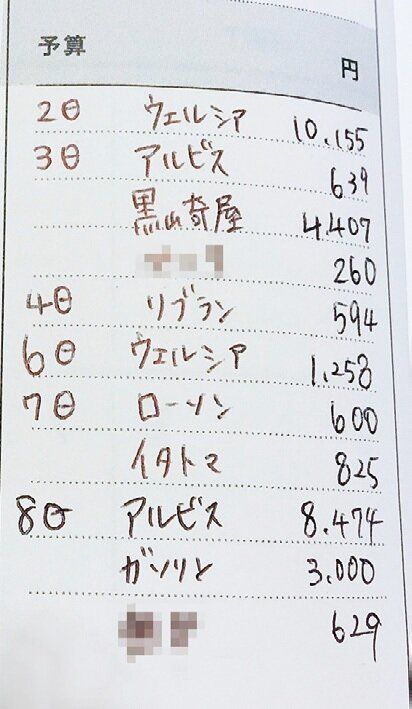 予算 円
2日 ウェルシア 10.155
3日 アルビス 639
黒山奇屋 4.407
260
4日 リブラン 594
6日 ウェルシア 1.258
7日 ローソン 600
イタトマ 825
8日 アルビス 8.474
ガソリン 3.000
629